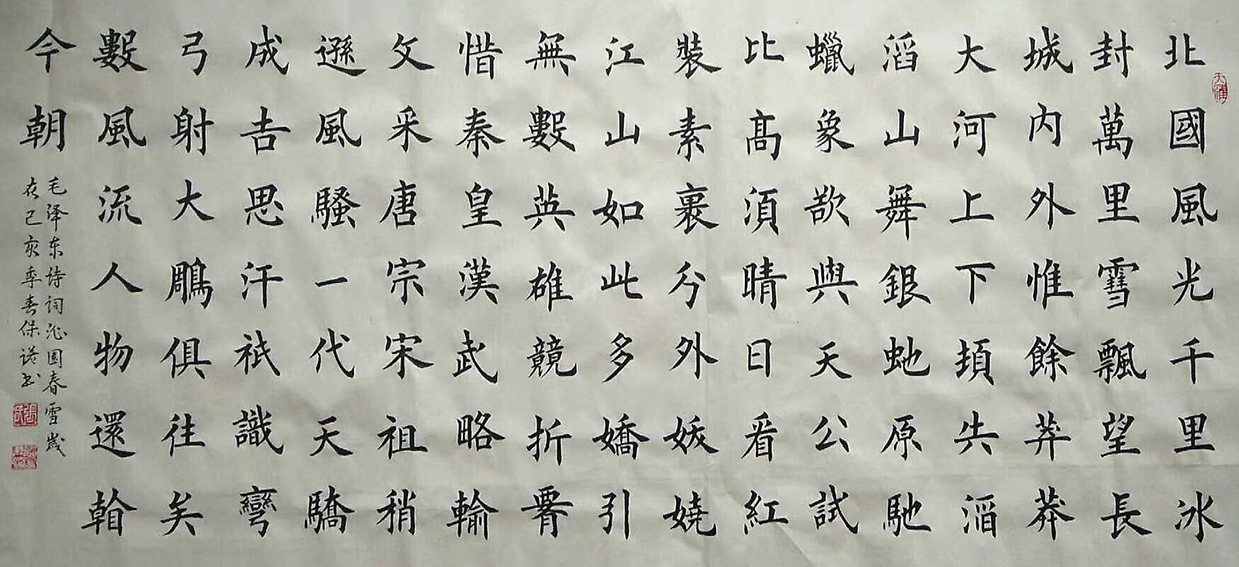 北國風光千里冰
封萬里雪飄望長
城內外惟餘莽莽
大河上下頓失滔
滔山舞銀虵原馳
蠟象欲與天公試
比髙須晴日看紅
裝素裹分外妖嬈
江山如此多嬌引
無數英雄競折腰
惜秦皇漢武略輸
文采唐宗宋祖稍
遜風騷一代天驕
成吉思汗祇識彎
弓射大鵰俱往矣
數風流人物還看
今朝
毛泽东诗词沁园春雪岁
在己亥季春保诺书